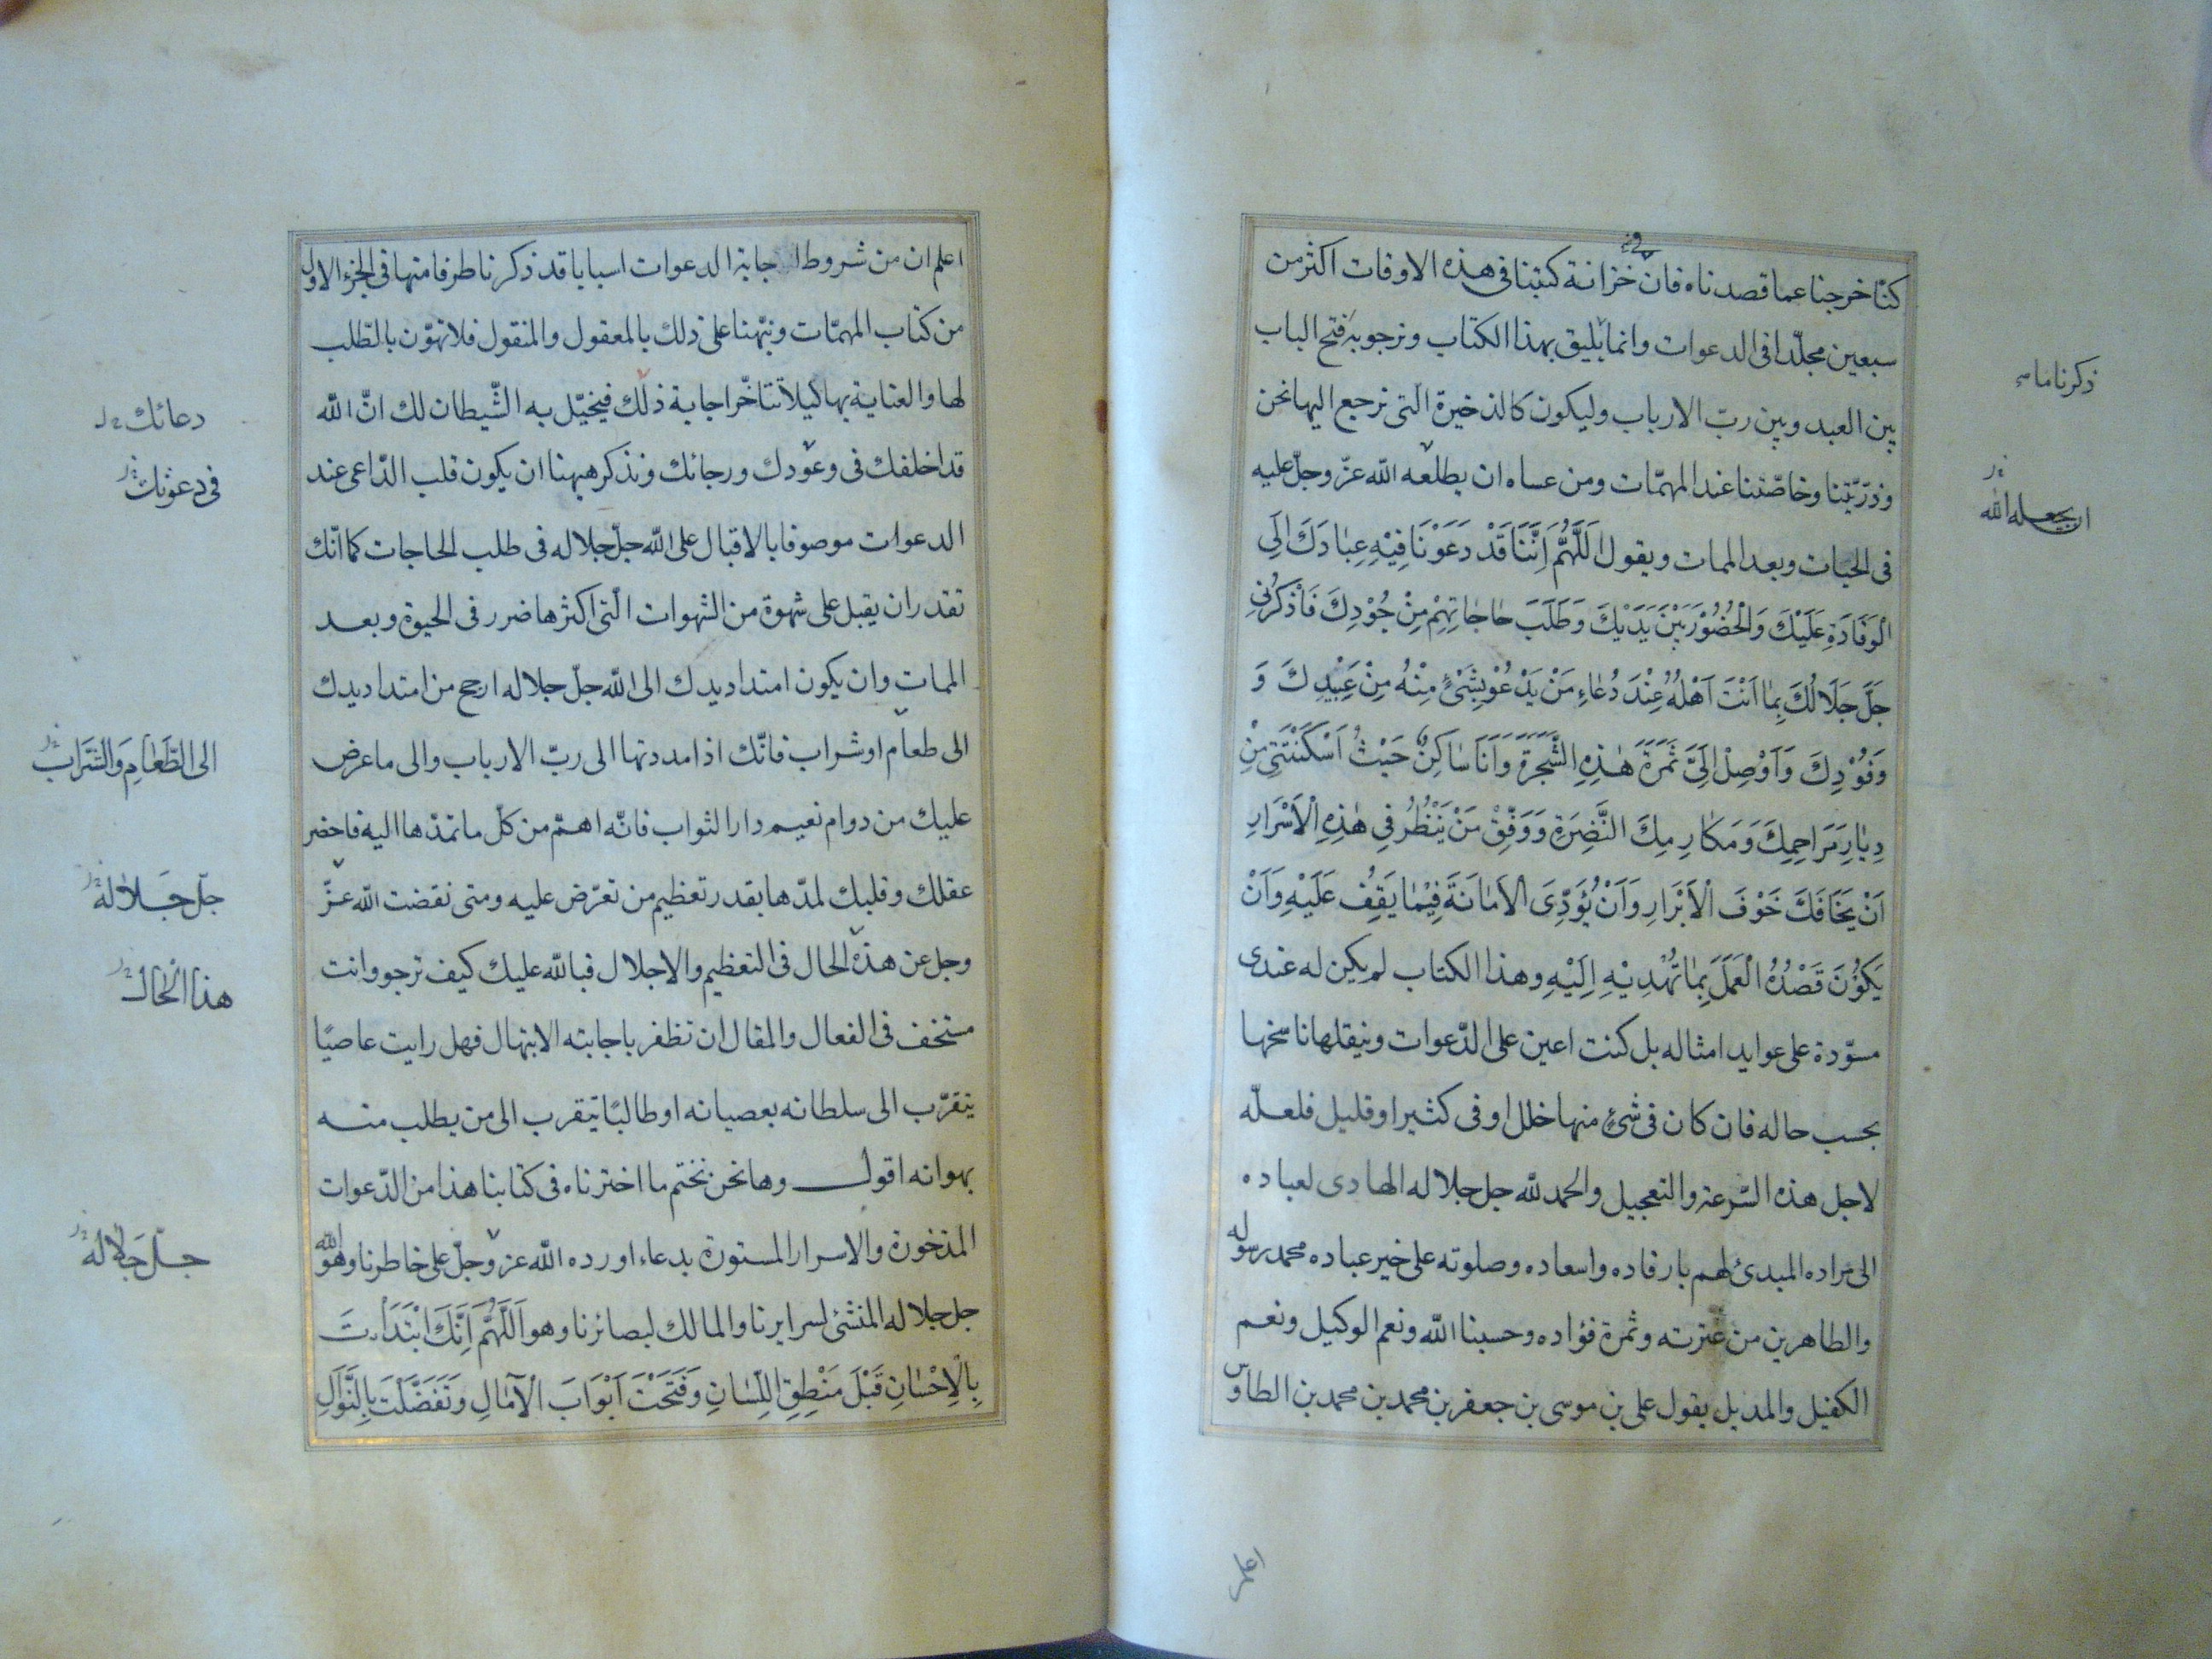 كنّا خرجنا عما قصدناه فان خزانة كتبنا فى هذه الاوقات اكثر من
سبعين مجلّدا فى الدعوات وانما يليق بهذا الكتاب ونرجو به فتح الباب
ذكرنا ما
بين العبد وبين ربّ الارباب وليكون كالذخيرة الّتى نرجع اليها نحن
وذرّيّتنا وخاصّتنا عند المهمّات ومن عساه ان يطلعه الله عزّ وجلّ عليه
ان يجعله الله
فى الحيات وبعد الممات ويقول اَللّٰهُمَّ اِنَّنَا قَدْ دَعَوْنَا فِيْهِ عِبٰادَكَ اِلَى
الْوَفَادَةِ عَلَيْكَ وَالْحُضُوْرَ بَيْنَ يَدَيْكَ وَطَلَبَ حٰاجٰاتِهِمْ مِنْ جُوْدِكَ فَاذْكُرْنِي
جَلَّ جَلَالُكَ بِمٰا اَنْتَ اَهْلُهُ عِنْدَ دُعٰاءِ مَنْ يَدْعُوْ بِشَىْءٍ مِنْهُ مِنْ عَبِيْدِكَ وَ
وَفُوْدِكَ وَاَوْصِلْ اِلَىَّ ثَمَرَةَ هٰذِهِ الشَّجَرَةِ وَاَنَا سٰاكِنٌ حَيْثُ اَسْكَنْتَنِى مِنْ
دِيٰارِ مَرَاحِمِكَ وَمَكٰارِمِكَ النَّضِرَةِ وَوَفِّقْ مَنْ يَنْظُرُ فِى هٰذِهِ الْاَسْرَارِ
اَنْ يَخَافَكَ خَوْفَ الْاَبْرَارِ وَاَنْ يُؤَدِّىَ الْاَمٰانَةَ فِيْمٰا يَقِفُ عَلَيْهِ وَاَنْ
يَكُوْنَ قَصْدُهُ الْعَمَلَ بِمٰا تُهْدِيْهِ اِلَيْهِ وهذا الكتاب لم يكن له عندى
مسوّدة على عوايد امثاله بل كنت اعين على الدّعوات وينقلها ناسخها
بحسب حاله فان كان فى شئ منها خلل او فى كثير او قليل فلعلّه
لاجل هذه السّرعة والتعجيل والحمد لله جل جلاله الهادى لعباده
الى مراده المبدئ لهم بارفاده واسعاده وصلوته على خير عباده محمد رسوله
والطاهرين من عترته وثمرة فؤاده وحسبنا الله ونعم الوكيل ونعم
الكفيل والمديل يقول على بن موسى بن جعفر بن محمد بن محمد بن الطاوس
اعلم
اعلم ان من شروط اجابة الدعوات اسبابا قد ذكرنا طرفا منها فى الجزء الاول
من كتاب المهمّات ونبّهنا على ذلك بالمعقول والمنقول فلا تهوّن بالتطلب
لها والعناية بها كيلا تتاخّر اجابة ذلك فيخيّل به الشّيطان لك انّ الله
دعائك
قد اخلفك فى وعودك ورجائك ونذكر هيهنا ان يكون قلب الدّاعى عند
فى دعوتك
الدعوات موصوفا بالاقبال على الله جلّ جلاله فى طلب الحاجات كما انّك
تقدر ان يقبل على شهوة من الشهوات الّتى اكثرها ضرر فى الحيوة وبعد
الممات وان يكون امتداد يدك الى الله جلّ جلاله ارجح من امتداد يدك
الى طعام او شراب فانّك اذا مددتها الى ربّ الارباب والى ما عرض
الى الطَّعٰامِ وَالشَّرَابِ
عليك من دوام نعيم دار الثواب فانّه اهمّ من كلّ ما تمدّها اليه فاحضر
عقلك وقلبك لمدّها بقدر تعظيم من تعرّض عليه ومتى نقضت الله عزّ
جَلّ جَلَالُهُ
وجل عن هذه الحال فى التعظيم والاجلال فبالله عليك كيف ترجو وانت
هذا الحال
مستخف فى الفعال والمقال ان تظفر باجابته الابتهال فهل رايت عاصيًا
يتقرّب الى سلطانه بعصيانه او طالبًا يتقرب الى من يطلب منه
بهوانه اقول وها نحن نختم ما اخترناه فى كتابنا هذا من الدّعوات
المذخورة والاسرار المستورة بدعاء اورده الله عز وجلّ على خاطرنا وهو الله
جَلّ جَلَالُهُ
جل جلاله المنشئ لسرايرنا والمالك لبصائرنا وهو اَللّٰهُمَّ اِنَّكَ ابْتَدَاْتَ
بِالْاِحْسٰانِ قَبْلَ مَنْطِقِ اللِّسٰانِ وَفَتَحْتَ اَبْوَابَ الْآمٰالِ وَتَفَضَّلْتَ بِالنَّوَالِ